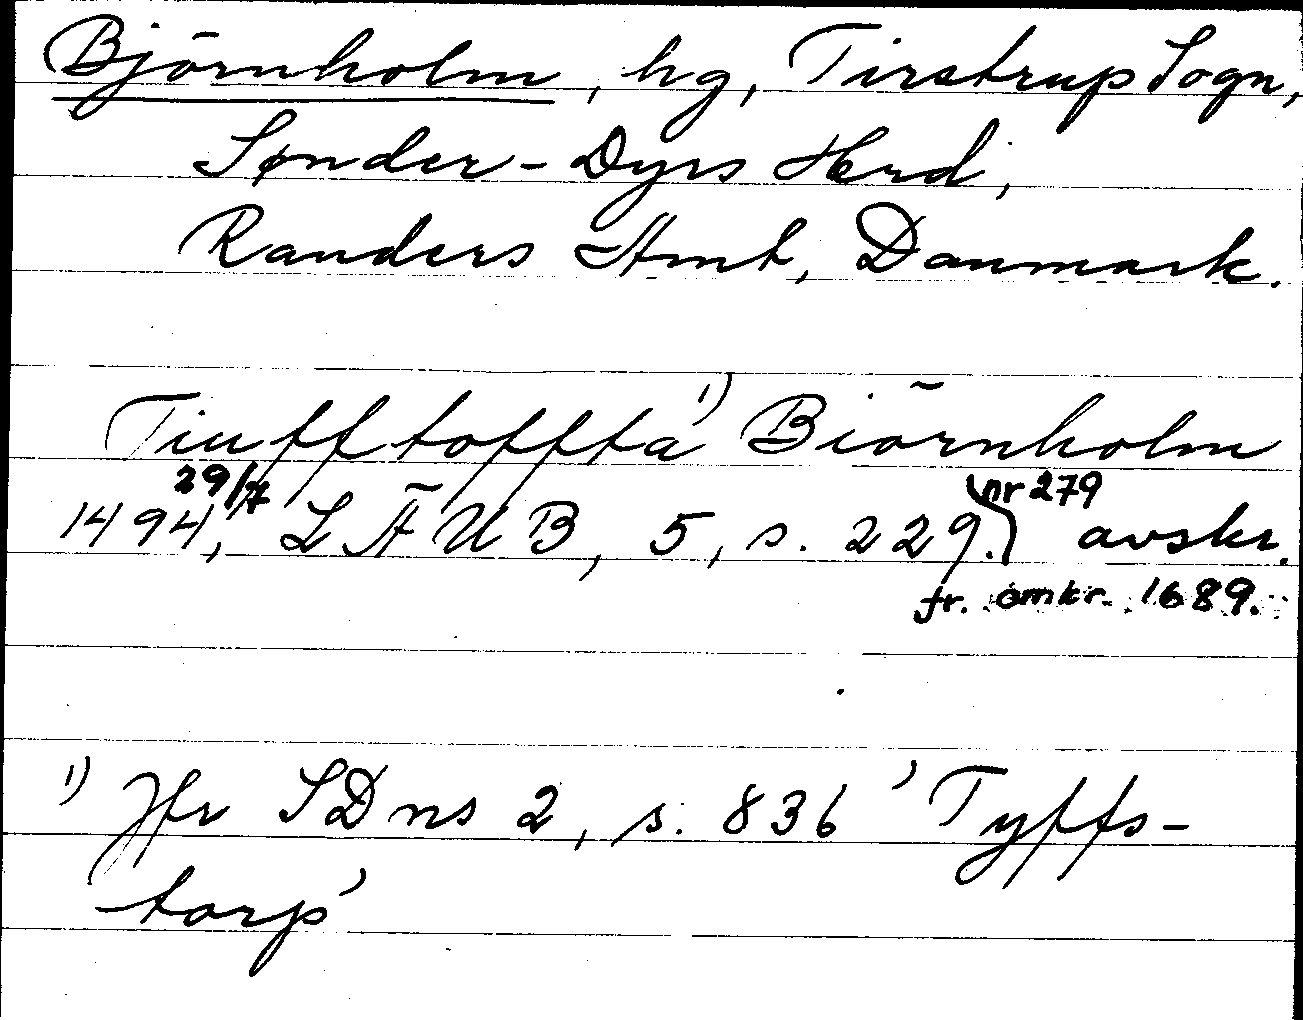 Björnholm, hg, Tirstrup Sogn,
Sønder-Dyrs Herd,
Randers Amt, Danmark.
Tiufftofftä 1) Biörnholm
1494 29/7, LÄUB, 5, s. 229. nr 279 avskr.
fr. omkr. 1689.
1) Jfr SDns 2, s. 836 'Tyffs-
torp'